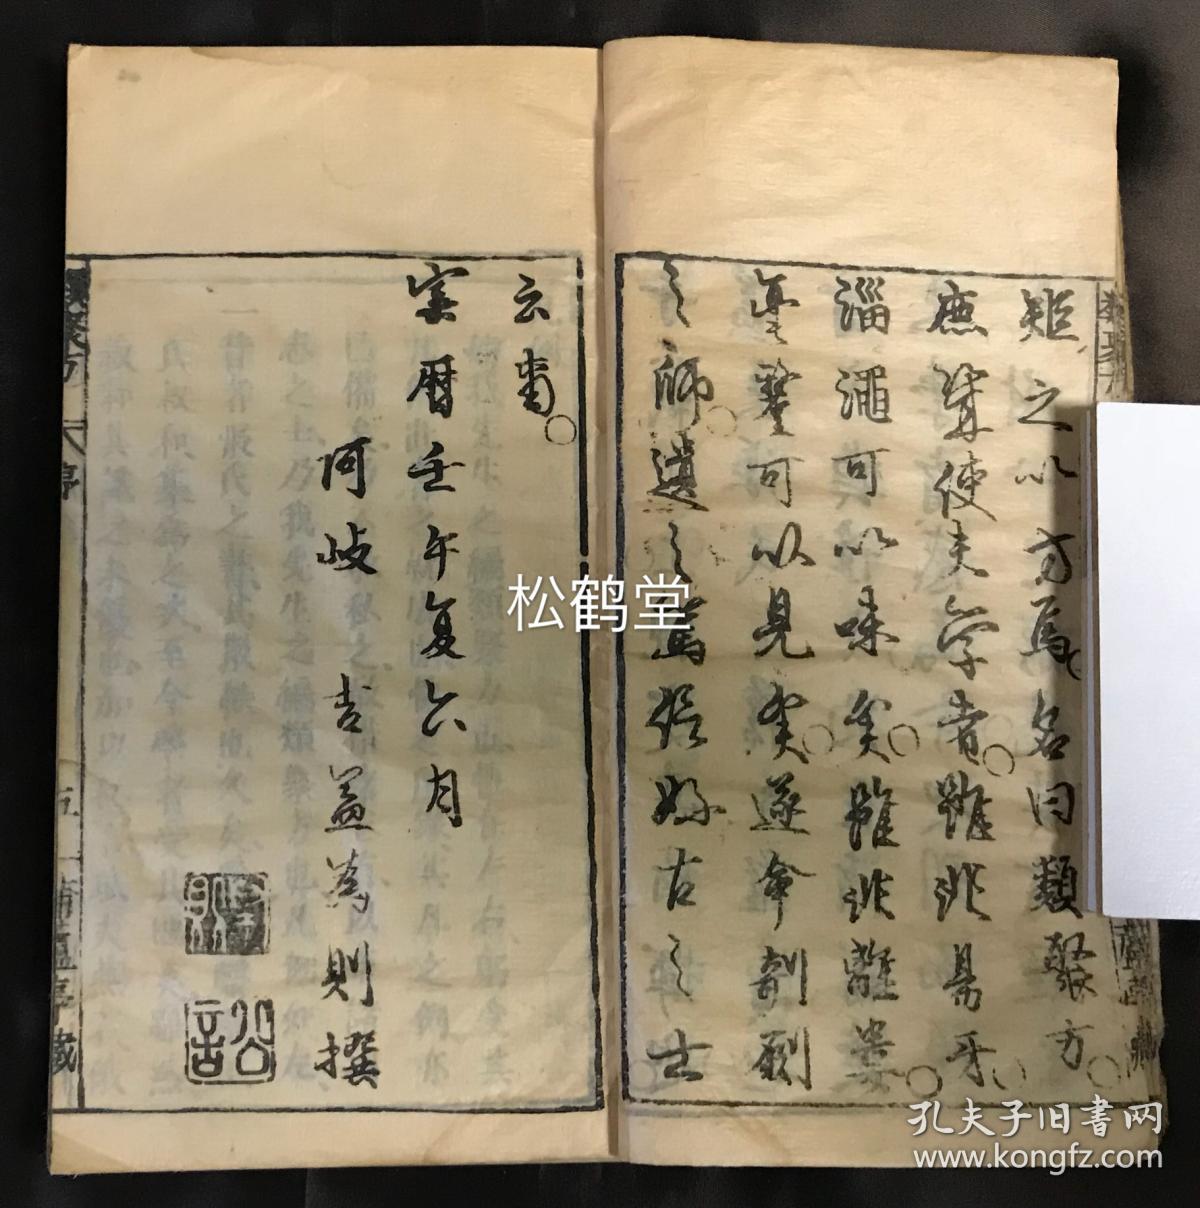 矩之以方焉名曰類聚方
庶幾使夫學者雖非易牙
淄澠可以味矣雖非離婁
毫釐可以見矣遂命剞劂
之師遺之篤信好古之士
云爾
宝曆壬午夏六月
阿岐 吉益為則撰
公言
類聚方 序 五 蔵
松鹤堂
孔夫子旧书网
www.kongfz.com